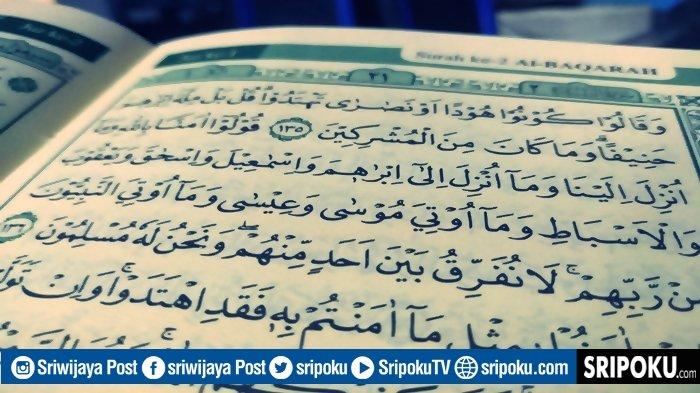 Surah ke-2 AL-BAQARAH
٢١
وَقَالُوْا كُوْنُوْا هُوْدًا اَوْ نَصٰرٰى تَهْتَدُوْا قُلْ بَلْ مِلَّةَ اِبْرٰهٖمَ
حَنِيْفًا وَمَا كَانَ مِنَ الْمُشْرِكِيْنَ ١٣٥ قُوْلُوْٓا اٰمَنَّا بِاللّٰهِ وَمَآ
اُنْزِلَ اِلَيْنَا وَمَآ اُنْزِلَ اِلٰٓى اِبْرٰهٖمَ وَاِسْمٰعِيْلَ وَاِسْحٰقَ وَيَعْقُوْبَ
وَالْاَسْبَاطِ وَمَآ اُوْتِيَ مُوْسٰى وَعِيْسٰى وَمَآ اُوْتِيَ النَّبِيُّوْنَ
مِنْ رَّبِّهِمْۚ لَا نُفَرِّقُ بَيْنَ اَحَدٍ مِّنْهُمْۖ وَنَحْنُ لَهٗ مُسْلِمُوْنَ ١٣٦
بِمِثْلِ مَآ اٰمَنْتُمْ بِهٖ فَقَدِ اهْتَدَوْاۚ وَاِنْ تَوَلَّوْا
Sriwijaya Post sriwijaya Post sripoku SripokuTV sripoku.com
SRIPOKU.com